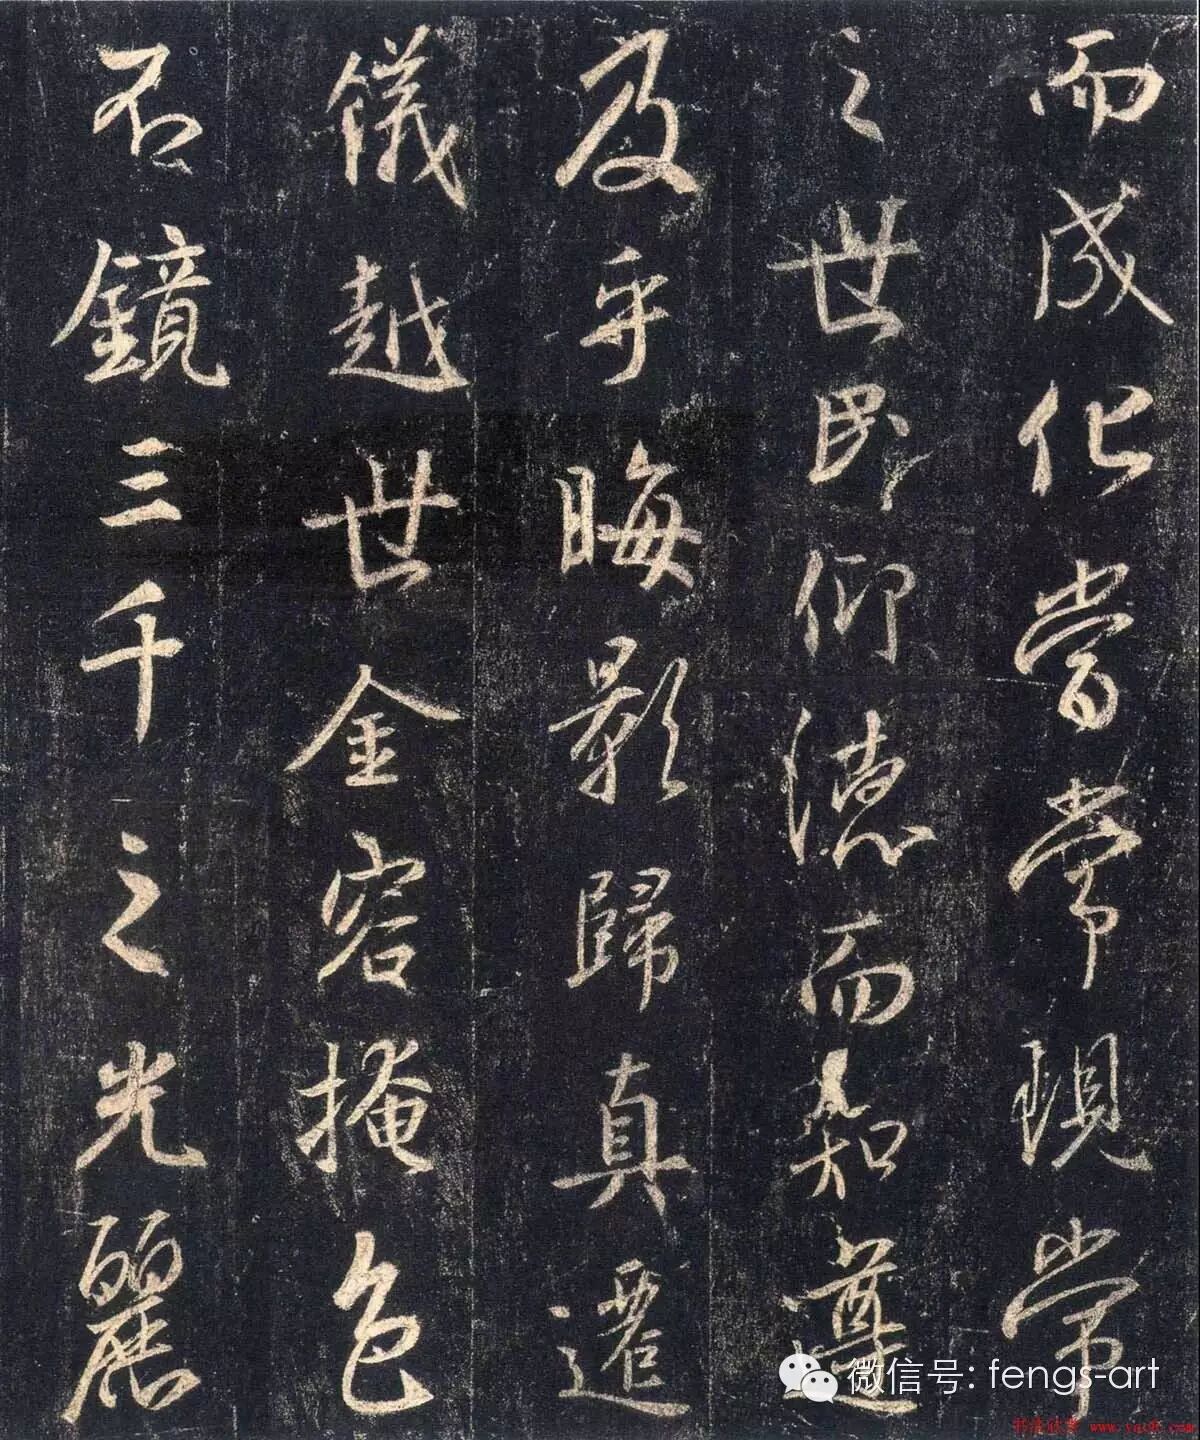 而成化當常現常
之世民仰德而知遵
及乎晦影歸真遷
儀越世金容掩色
不鏡三千之光麗
微信号: fengs-art
书法欣赏 www.yac8.com